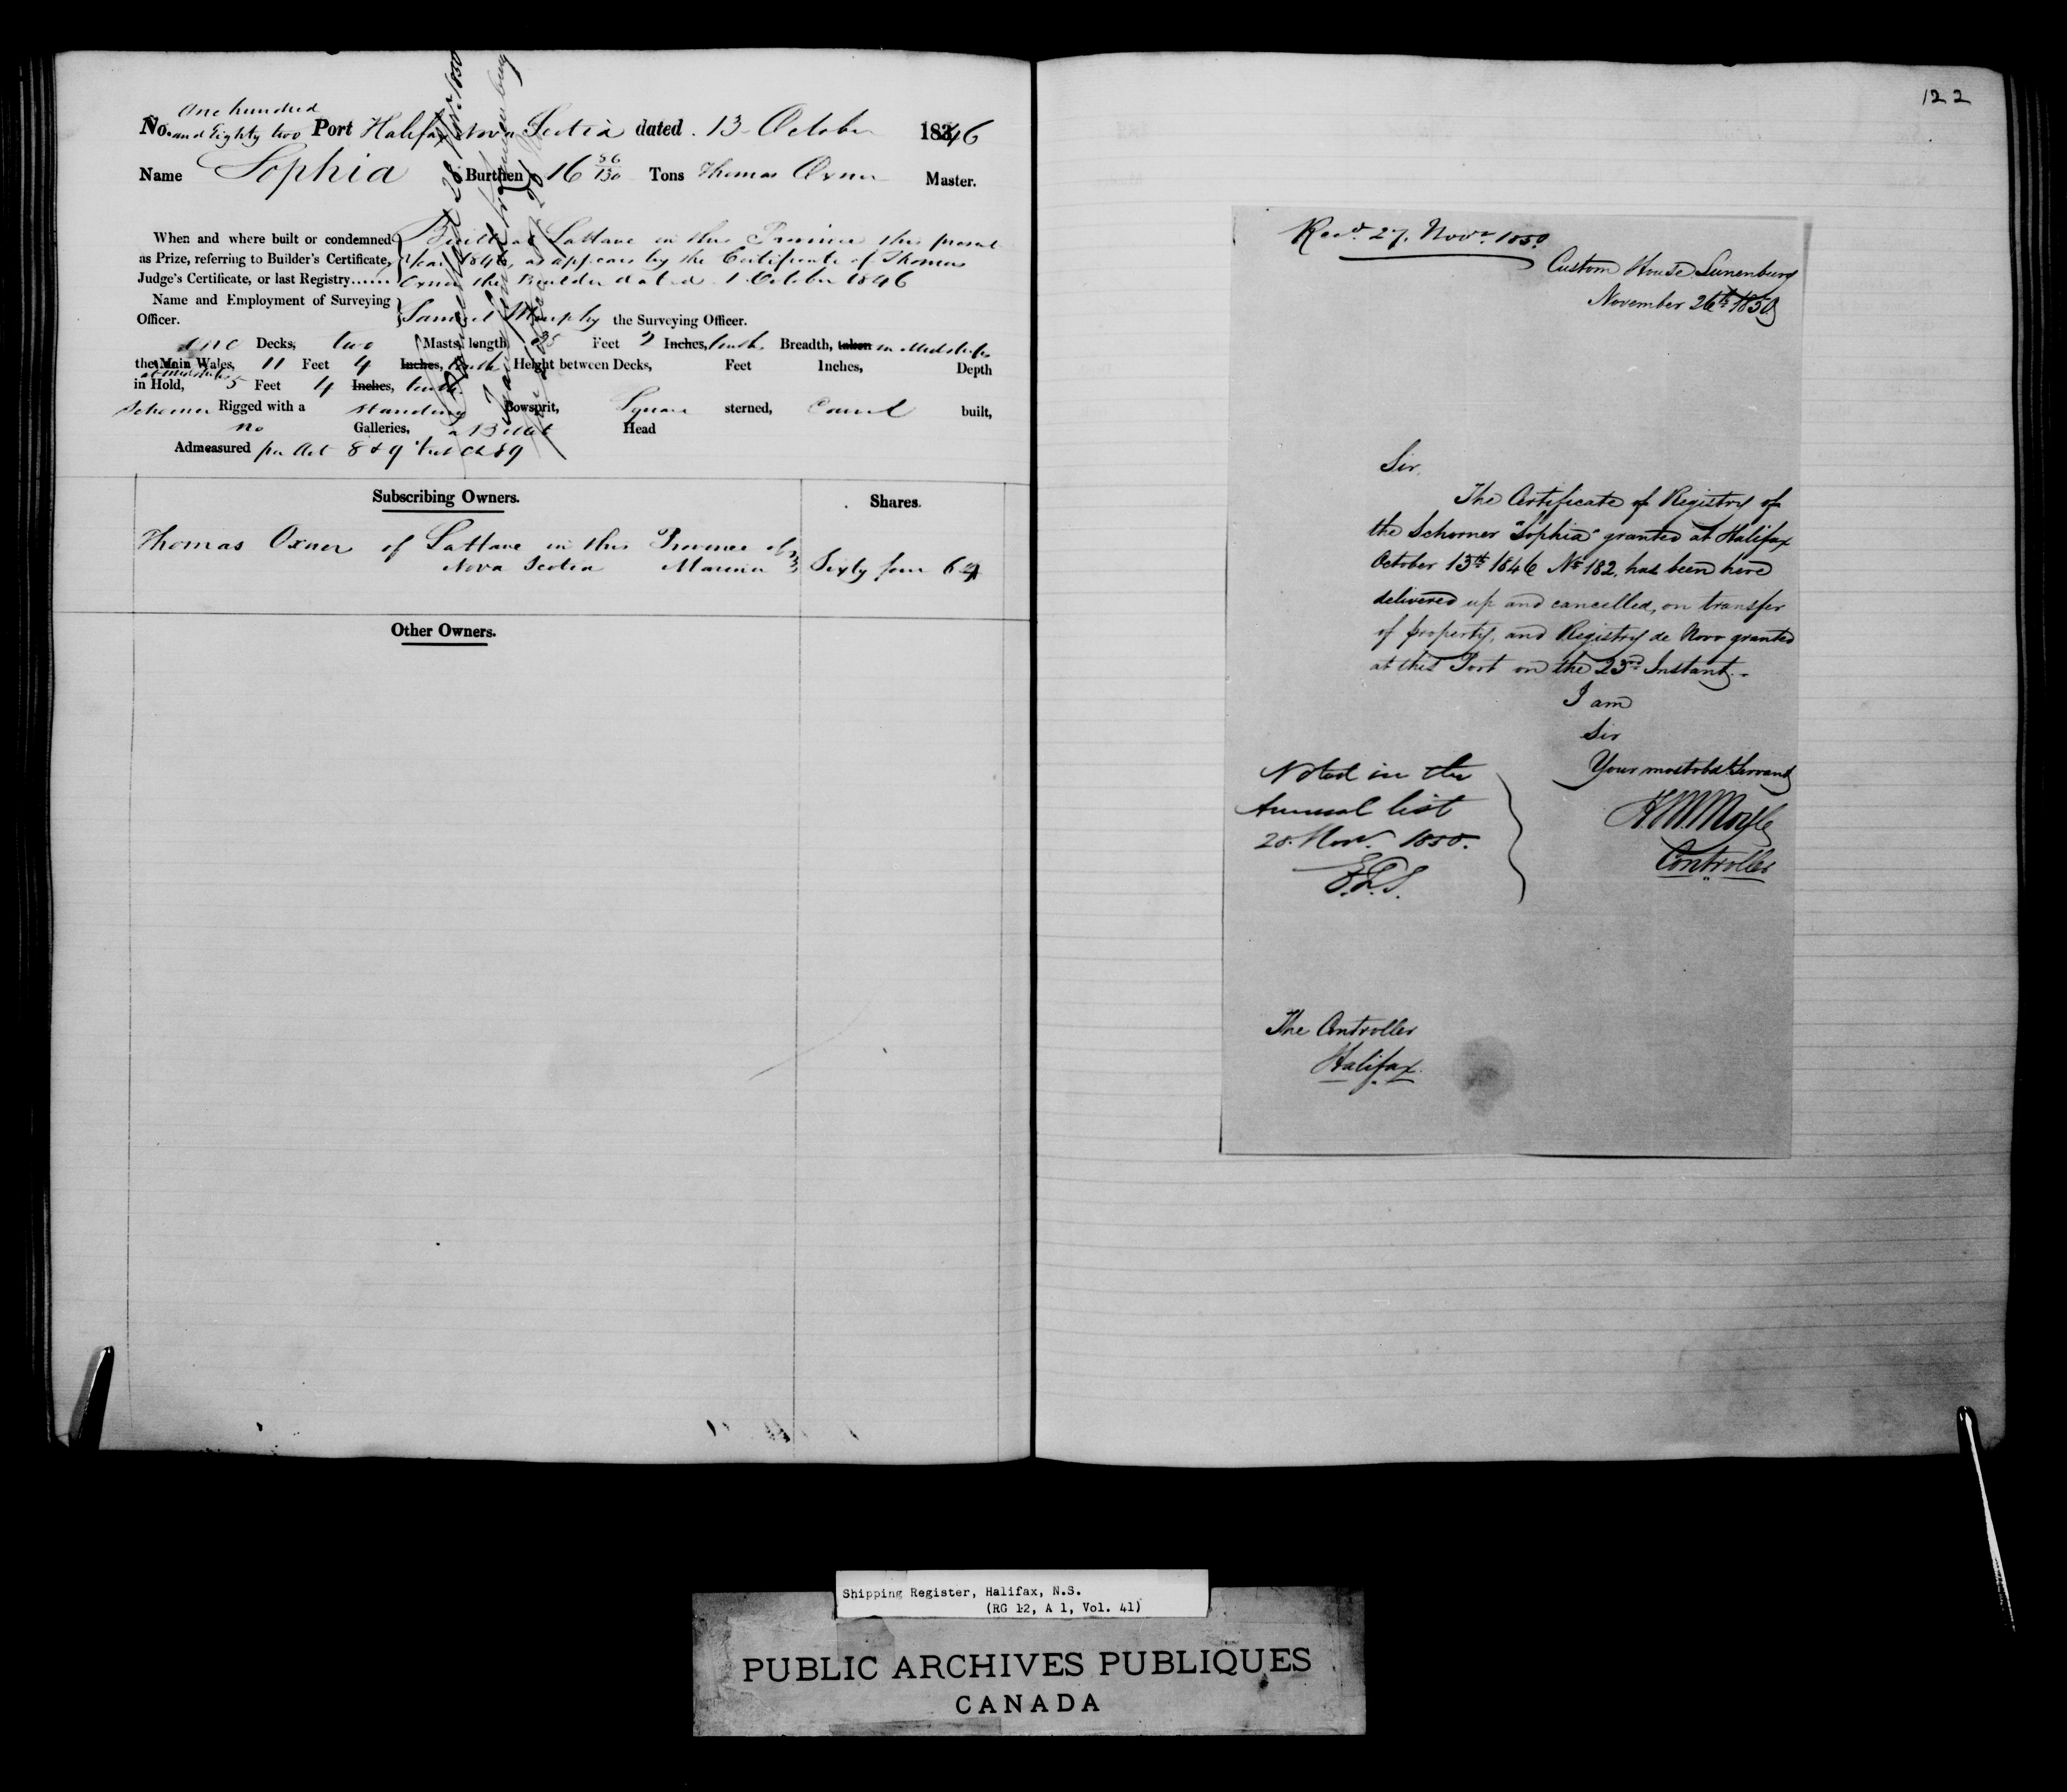 No. One hundred and Eighty two Port Halifax Nova Scotia dated 13 October 1846
Name Sophia Burthen 16 56/130 Tons Thomas Oxner Master.
When and where built or condemned Built at LaHave in this Province this present
as Prize, referring to Builder's Certificate, Year 1846, as appears by the Certificate of Thomas
Judge's Certificate, or last Registry...... Oxner the Builder dated 1 October 1846
Name and Employment of Surveying
Officer. Samuel Murphy the Surveying Officer.
one Decks, two Masts, length 35 Feet Inches, tenths Breadth, taken in Midships
the Main Wales, 11 Feet 4 Inches, tenths Height between Decks, Feet Inches, Depth
at midships
in Hold, 5 Feet 4 Inches, tenths
Schooner Rigged with a standing Bowsprit, Square sterned, Carvel built,
no Galleries, a Billet Head
Admeasured per Act 8 & 9 Vict Ch 89
Subscribing Owners. Shares.
Thomas Oxner of LaHave in this Province of
Nova Scotia Mariner Sixty four 64
Other Owners.
122
Recd. 27. Novr. 1850
Custom House Lunenburg
November 26th 1850
Sir,
The Certificate of Registry of
the Schooner "Sophia" granted at Halifax
October 13th 1846 No 182, has been here
delivered up and cancelled, on transfer
of property, and Registry de Novo granted
at this Port on the 23rd Instant.
I am
Sir
Your most obdt Servant
Controller
Noted in the
Annual list
28. Novr. 1850.
The Controller
Halifax
Shipping Register, Halifax, N.S.
(RG 12, A 1, Vol. 41)
PUBLIC ARCHIVES PUBLIQUES
CANADA